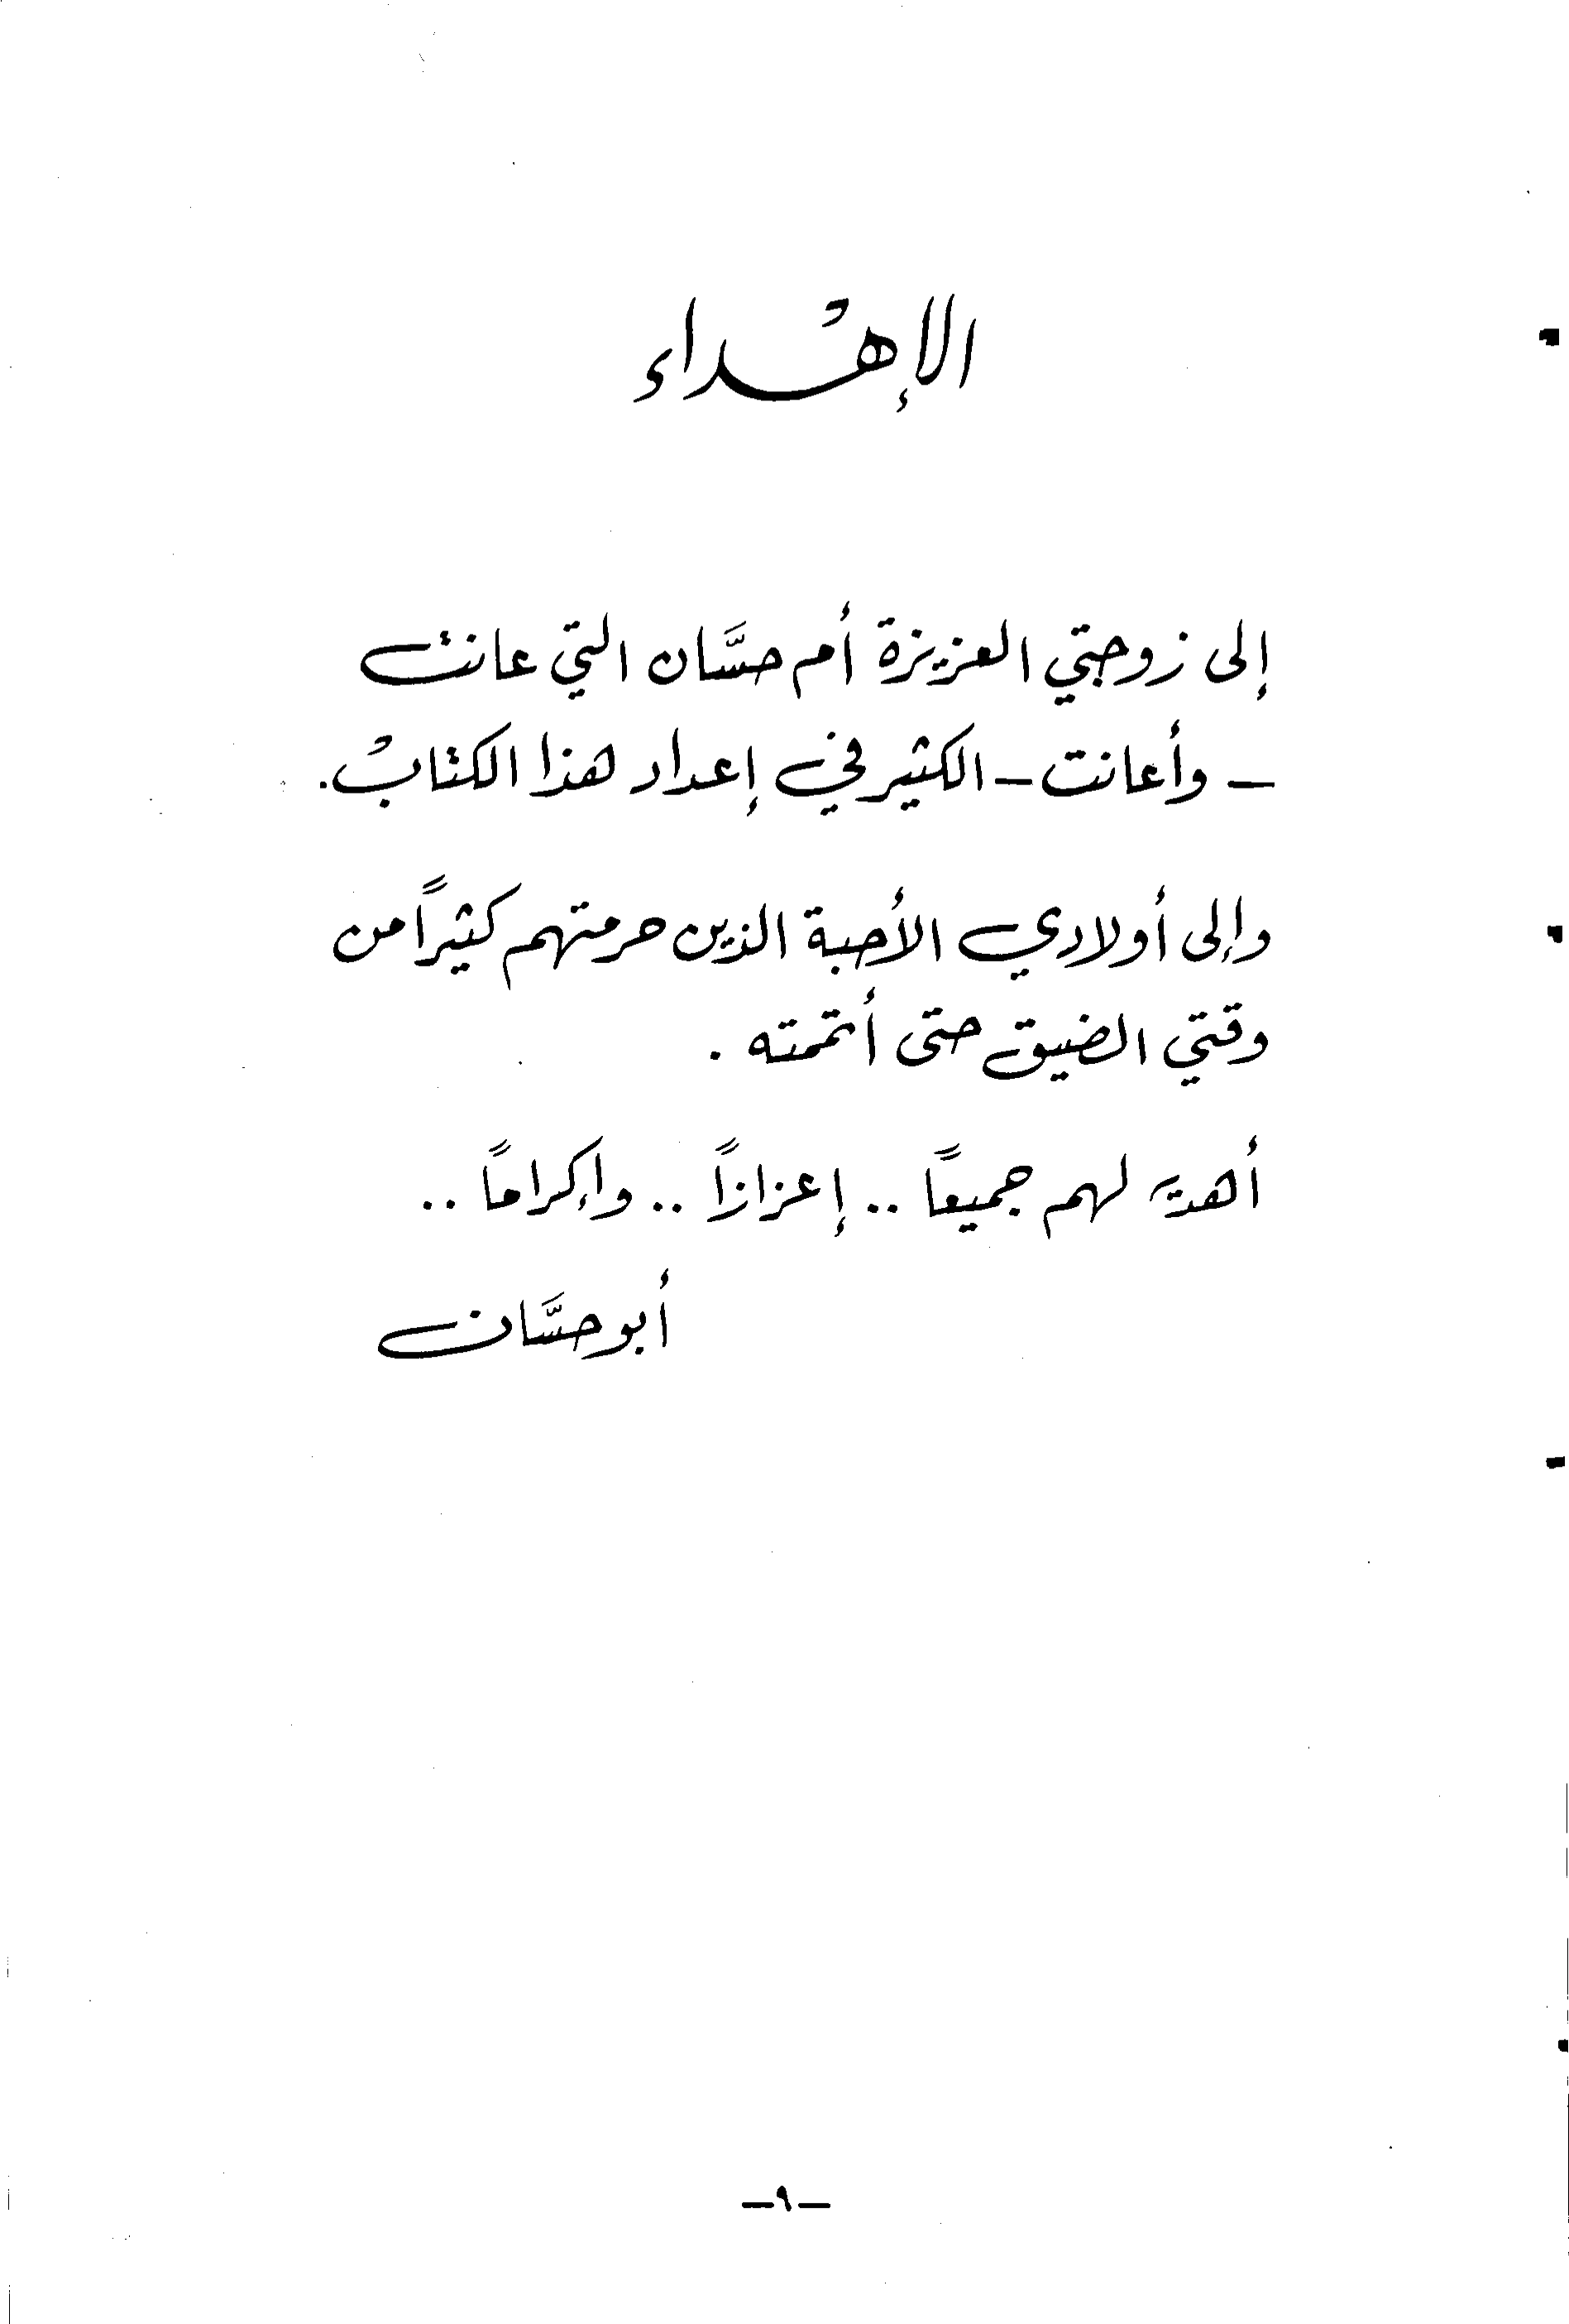 الإهْداء
إلى زوجتي العزيزة أم حسَّان التي عانت
– وأعانت – الكثير في إعداد هذا الكتابْ.
وإلى أولادي الأحبة الذين حرمتهم كثيراً من
وقتي الضيق حتى أتممته .
أهديه لهم جميعاً .. إعزازاً .. وإكراماً ..
أبو حسَّان
– ٩ –